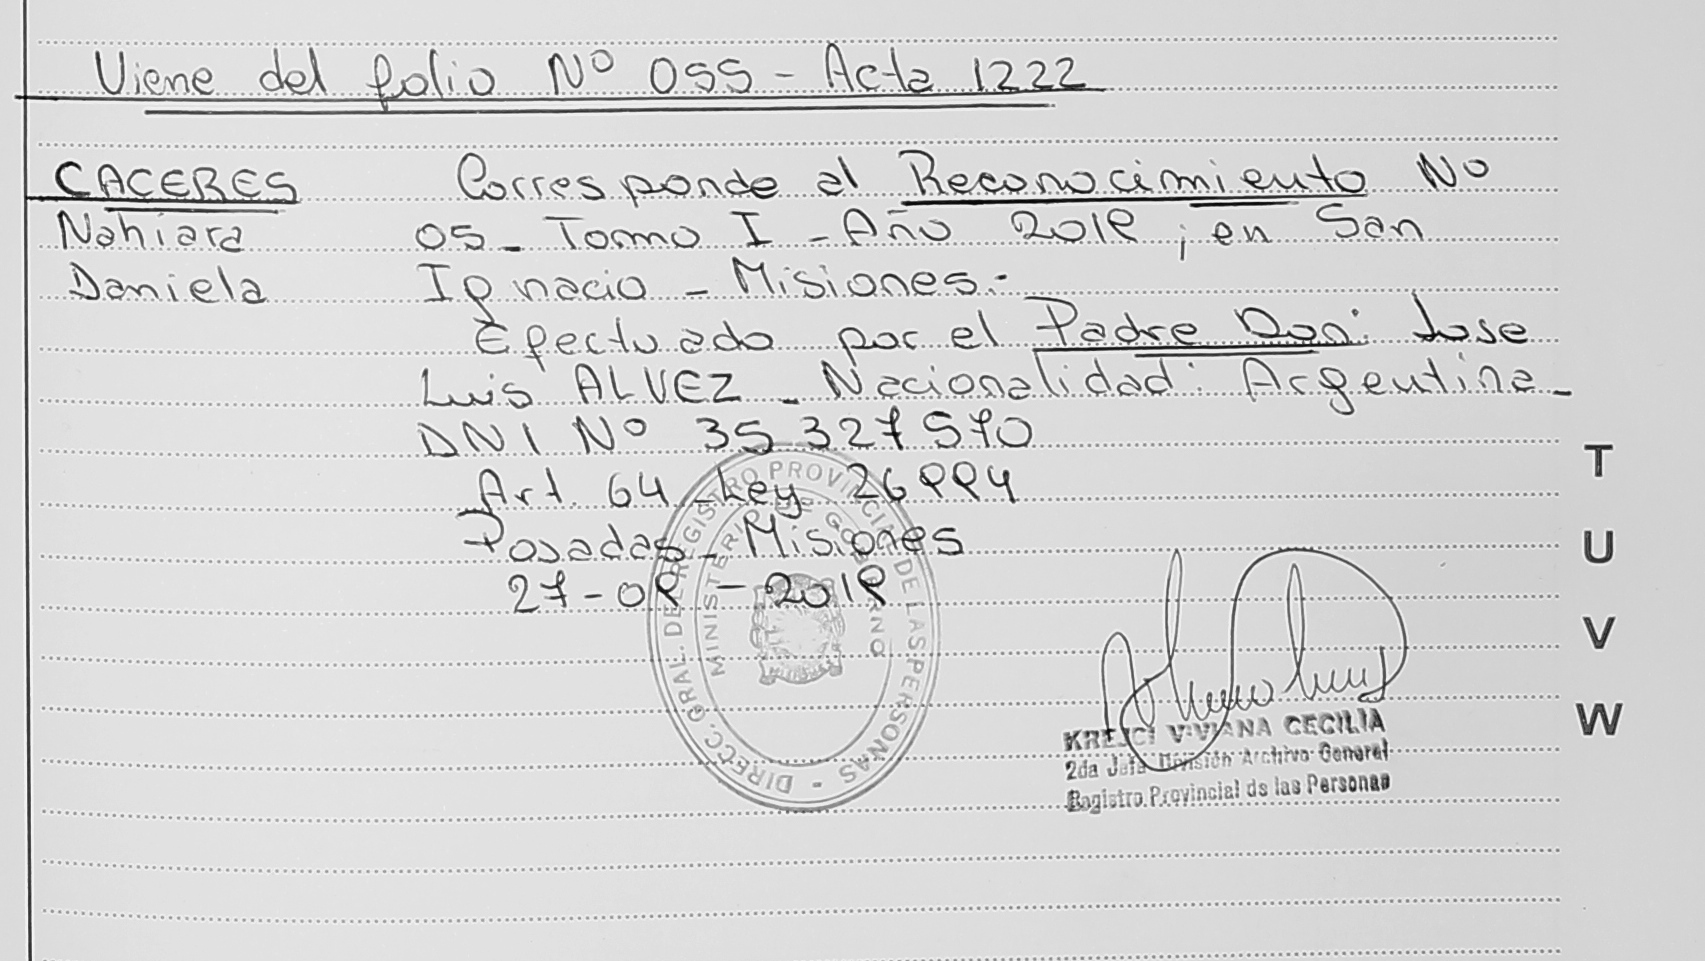 Viene del folio Nº 055 - Acta 1222
CACERES
Nahiara
Daniela
Corresponde al Reconocimiento Nº
05 - Tomo I - Año 2019 ; en San
Ignacio - Misiones.-
Efectuado por el Padre Don: Jose
Luis ALVEZ - Nacionalidad: Argentina -
DNI Nº 35 327 570
Art. 64 - Ley 26994
Posadas - Misiones
27-09-2019
DIRECC. GRAL. DEL REGISTRO PROVINCIAL DE LAS PERSONAS -
MINISTERIO DE GOBIERNO
KREJCI VIVIANA CECILIA
2da Jefe División Archivo General
Registro Provincial de las Personas
T
U
V
W